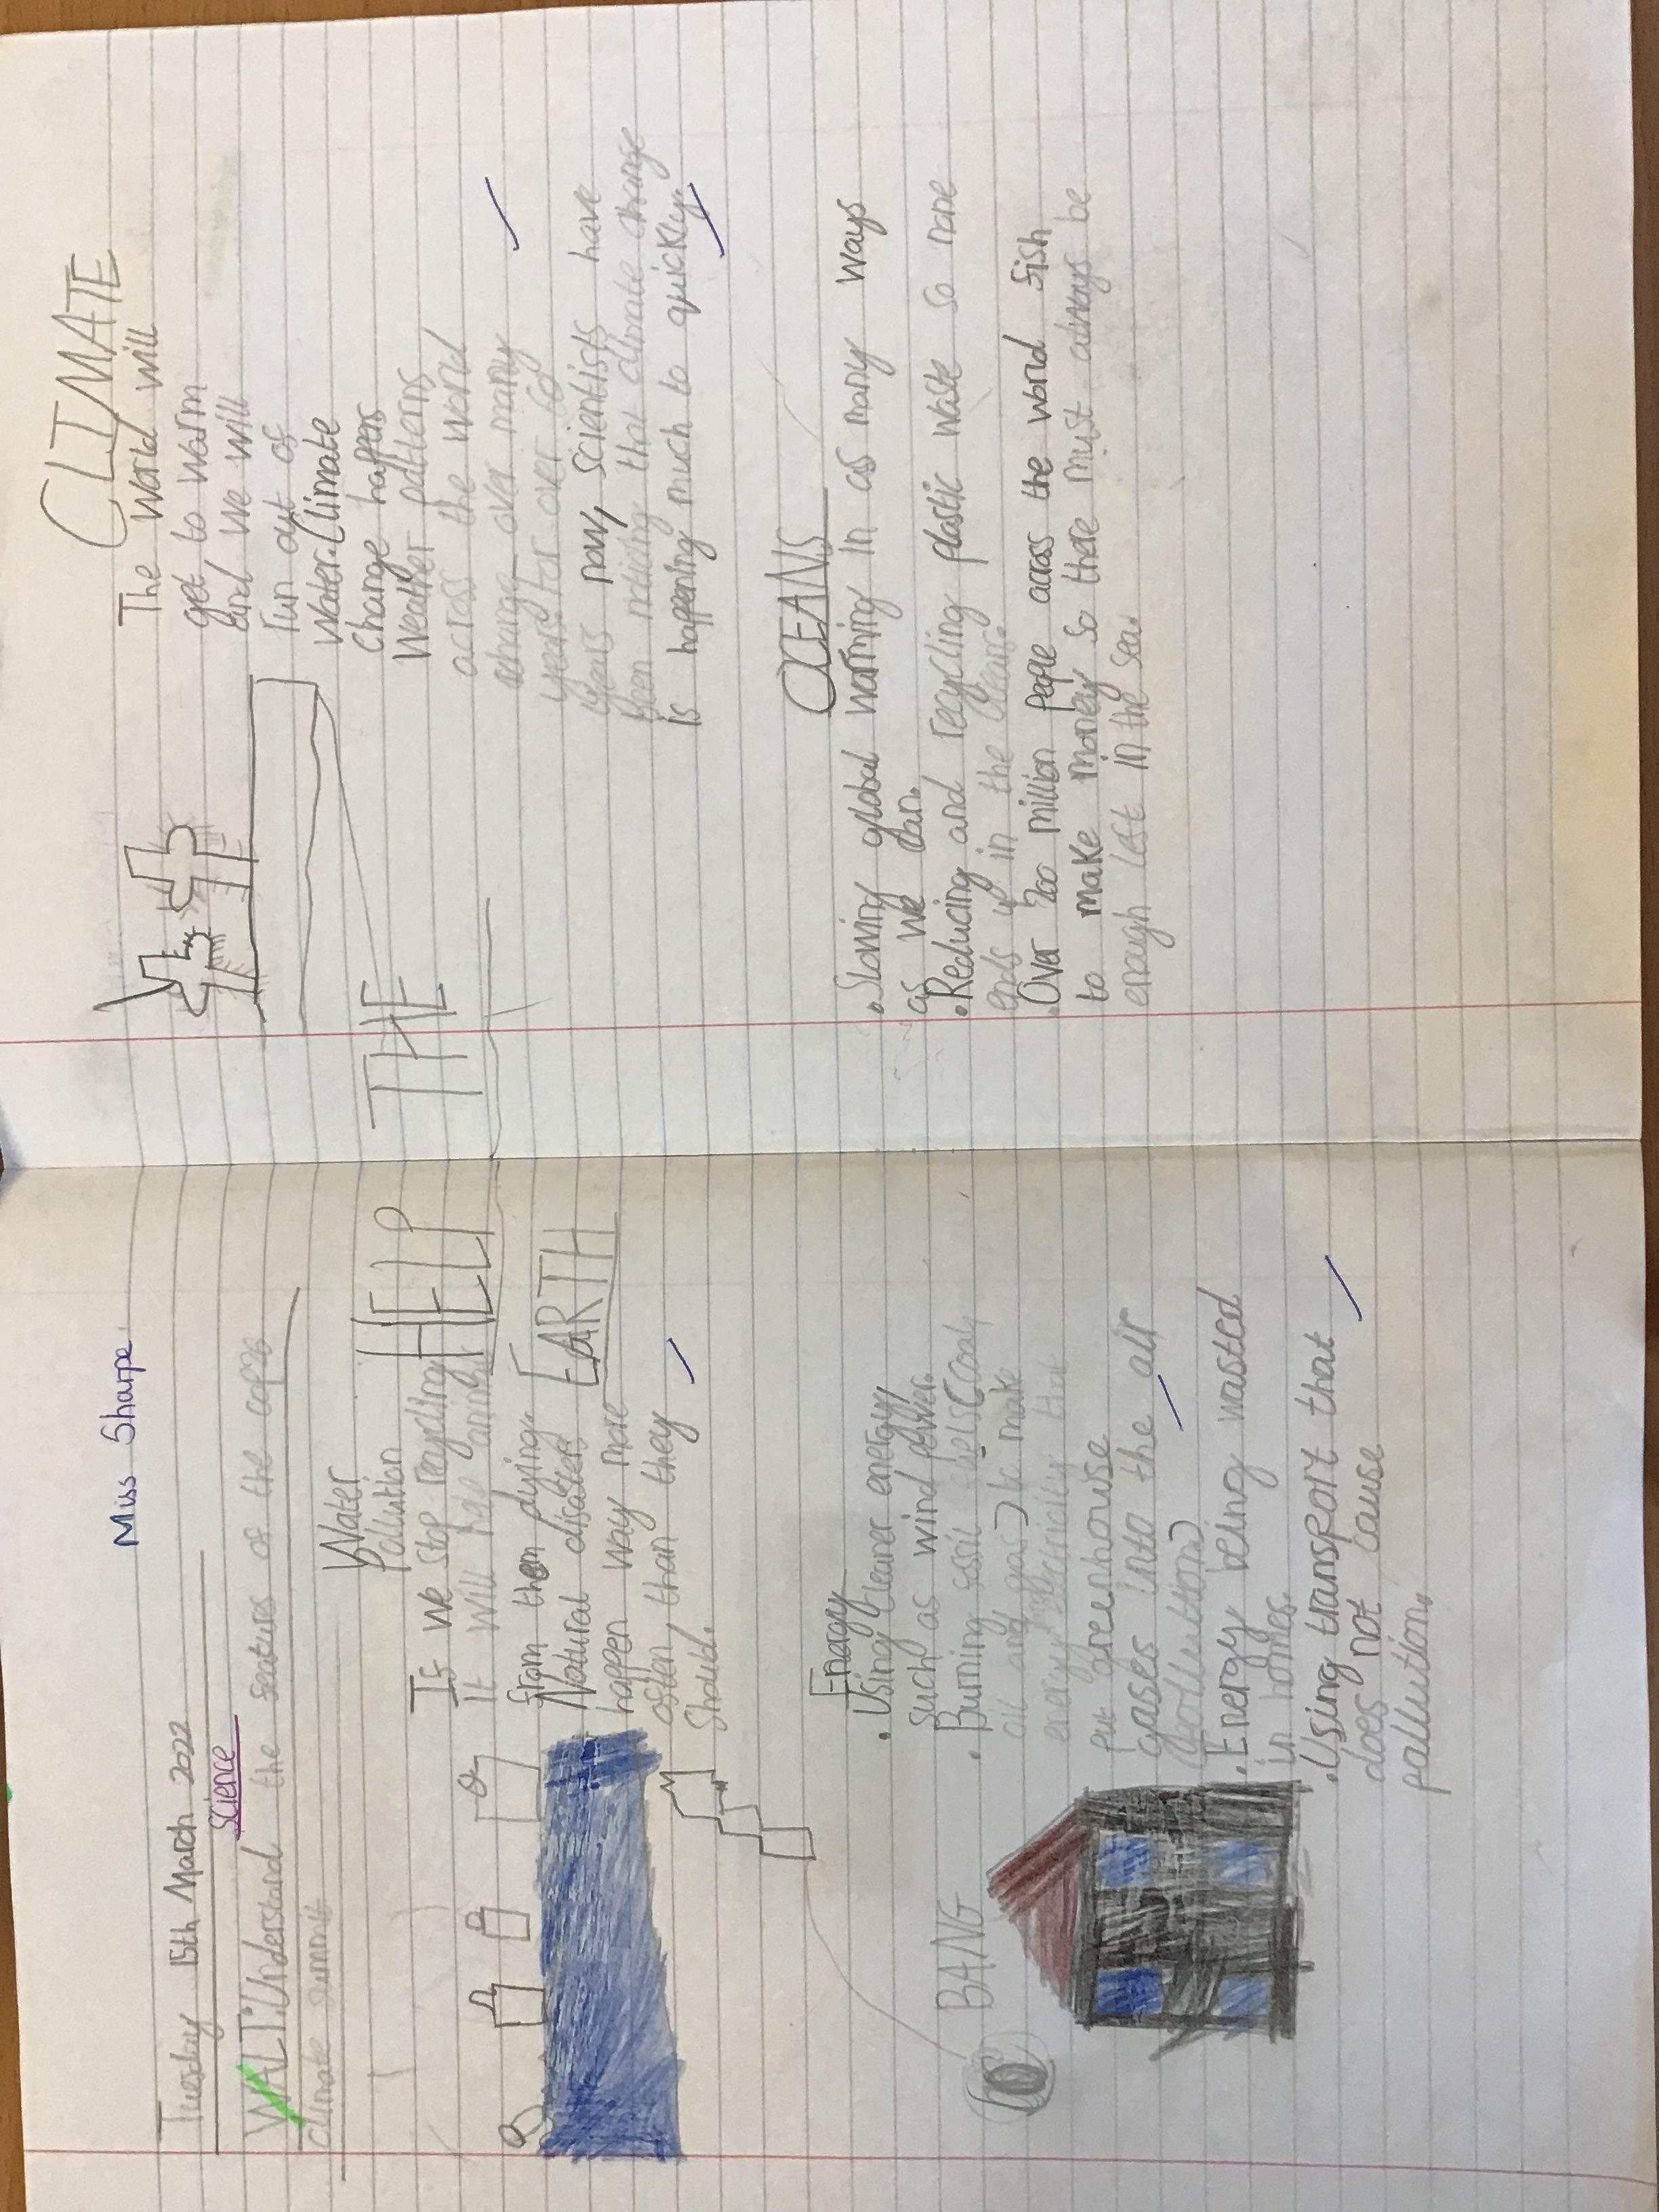 Miss Sharpe
Tuesday 15th March 2022
Science
WALT: Understand the features of the cop26
climate summit
Water
Pallution
HELP
If we stop recycling
it will help animals
from them dying.
EARTH
Natural disasters
happen way more
often than they
should.
Energy
• Using cleaner energy,
such as wind power.
• Burning fossil fuels (coal,
oil and gas) to make
energy electricity that
put greenhouse
gases into the air
(pollution)
• Energy being wasted
in homes.
• Using transport that
does not cause
pallution.
BANG
THE
CLIMATE
The world will
get to warm
and we will
run out of
water. Climate
change happens
Weather patterns
across the world
change over many
years for over 60
years now, scientists have
been noticing that climate change
is happening much to quickly.
OCEANS
• Slowing global warming in as many ways
as we can.
• Reducing and recycling plastic waste so none
ends up in the oceans.
• Over 200 million people across the world fish
to make money so there must always be
enough left in the sea.